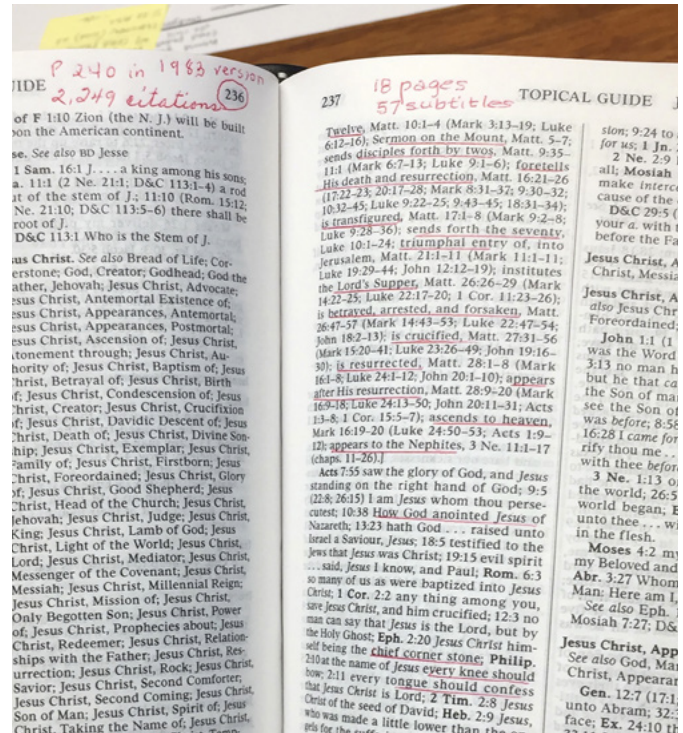 P 240 in 1983 version
2,249 citations
IDE
236
of F 1:10 Zion (the N. J.) will be built
on the American continent.
se. See also BD Jesse
1 Sam. 16:1 J. . . . a king among his sons;
a. 11:1 (2 Ne. 21:1; D&C 113:1–4) a rod
ut of the stem of J.; 11:10 (Rom. 15:12;
Ne. 21:10; D&C 113:5–6) there shall be
root of J.
D&C 113:1 Who is the Stem of J.
sus Christ. See also Bread of Life; Cor-
erstone; God, Creator; Godhead; God the
ather, Jehovah; Jesus Christ, Advocate;
esus Christ, Antemortal Existence of;
esus Christ, Appearances, Antemortal;
esus Christ, Appearances, Postmortal;
esus Christ, Ascension of; Jesus Christ,
tonement through; Jesus Christ, Au-
hority of; Jesus Christ, Baptism of; Jesus
hrist, Betrayal of; Jesus Christ, Birth
f; Jesus Christ, Condescension of; Jesus
hrist, Creator; Jesus Christ, Crucifixion
f; Jesus Christ, Davidic Descent of; Jesus
hrist, Death of; Jesus Christ, Divine Son-
hip; Jesus Christ, Exemplar; Jesus Christ,
amily of; Jesus Christ, Firstborn; Jesus
hrist, Foreordained; Jesus Christ, Glory
f; Jesus Christ, Good Shepherd; Jesus
hrist, Head of the Church; Jesus Christ,
ehovah; Jesus Christ, Judge; Jesus Christ,
King; Jesus Christ, Lamb of God; Jesus
Christ, Light of the World; Jesus Christ,
Lord; Jesus Christ, Mediator; Jesus Christ,
Messenger of the Covenant; Jesus Christ,
Messiah; Jesus Christ, Millennial Reign;
Jesus Christ, Mission of; Jesus Christ,
Only Begotten Son; Jesus Christ, Power
of; Jesus Christ, Prophecies about; Jesus
Christ, Redeemer; Jesus Christ, Relation-
ships with the Father; Jesus Christ, Res-
urrection; Jesus Christ, Rock; Jesus Christ,
Savior; Jesus Christ, Second Comforter;
Jesus Christ, Second Coming; Jesus Christ,
Son of Man; Jesus Christ, Spirit of; Jesus
Christ, Taking the Name of; Jesus Christ,
18 pages
57 subtitles
237
TOPICAL GUIDE
Twelve, Matt. 10:1–4 (Mark 3:13–19; Luke
6:12–16); Sermon on the Mount, Matt. 5–7;
sends disciples forth by twos, Matt. 9:35–
11:1 (Mark 6:7–13; Luke 9:1–6); foretells
His death and resurrection, Matt. 16:21–26
(17:22–23; 20:17–28; Mark 8:31–37; 9:30–32;
10:32–45; Luke 9:22–25; 9:43–45; 18:31–34);
is transfigured, Matt. 17:1–8 (Mark 9:2–8;
Luke 9:28–36); sends forth the seventy,
Luke 10:1–24; triumphal entry of, into
Jerusalem, Matt. 21:1–11 (Mark 11:1–11;
Luke 19:29–44; John 12:12–19); institutes
the Lord's Supper, Matt. 26:26–29 (Mark
14:22–25; Luke 22:17–20; 1 Cor. 11:23–26);
is betrayed, arrested, and forsaken, Matt.
26:47–57 (Mark 14:43–53; Luke 22:47–54;
John 18:2–13); is crucified, Matt. 27:31–56
(Mark 15:20–41; Luke 23:26–49; John 19:16–
30); is resurrected, Matt. 28:1–8 (Mark
16:1–8; Luke 24:1–12; John 20:1–10); appears
after His resurrection, Matt. 28:9–20 (Mark
16:9–18; Luke 24:13–50; John 20:11–31; Acts
1:3–8; 1 Cor. 15:5–7); ascends to heaven,
Mark 16:19–20 (Luke 24:50–53; Acts 1:9–
12); appears to the Nephites, 3 Ne. 11:1–17
(chaps. 11–26).]
Acts 7:55 saw the glory of God, and Jesus
standing on the right hand of God; 9:5
(22:8; 26:15) I am Jesus whom thou perse-
cutest; 10:38 How God anointed Jesus of
Nazareth; 13:23 hath God . . . raised unto
Israel a Saviour, Jesus; 18:5 testified to the
Jews that Jesus was Christ; 19:15 evil spirit
. . . said, Jesus I know, and Paul; Rom. 6:3
so many of us as were baptized into Jesus
Christ; 1 Cor. 2:2 any thing among you,
save Jesus Christ, and him crucified; 12:3 no
man can say that Jesus is the Lord, but by
the Holy Ghost; Eph. 2:20 Jesus Christ him-
self being the chief corner stone; Philip.
2:10 at the name of Jesus every knee should
bow; 2:11 every tongue should confess
that Jesus Christ is Lord; 2 Tim. 2:8 Jesus
Christ of the seed of David; Heb. 2:9 Jesus,
who was made a little lower than the
sion; 9:24 to
for us; 1 Jn.
2 Ne. 2:9
all; Mosiah
make interc
cause of the
D&C 29:5 (
your a. with t
before the Fa
Jesus Christ, A
Christ, Messia
Jesus Christ, A
also Jesus Chr
Foreordained;
John 1:1 (1
was the Word
3:13 no man h
but he that ca
the Son of ma
see the Son of
was before; 8:58
16:28 I came for
rify thou me . .
with thee before
3 Ne. 1:13 o
the world; 26:5
world began; E
unto thee . . . wi
in the flesh.
Moses 4:2 my
my Beloved and
Abr. 3:27 Whom
Man: Here am I,
See also Eph. 1
Mosiah 7:27; D&
Jesus Christ, App
See also God, Ma
Christ, Appearan
Gen. 12:7 (17:1;
unto Abram; 32:
face; Ex. 24:10 th